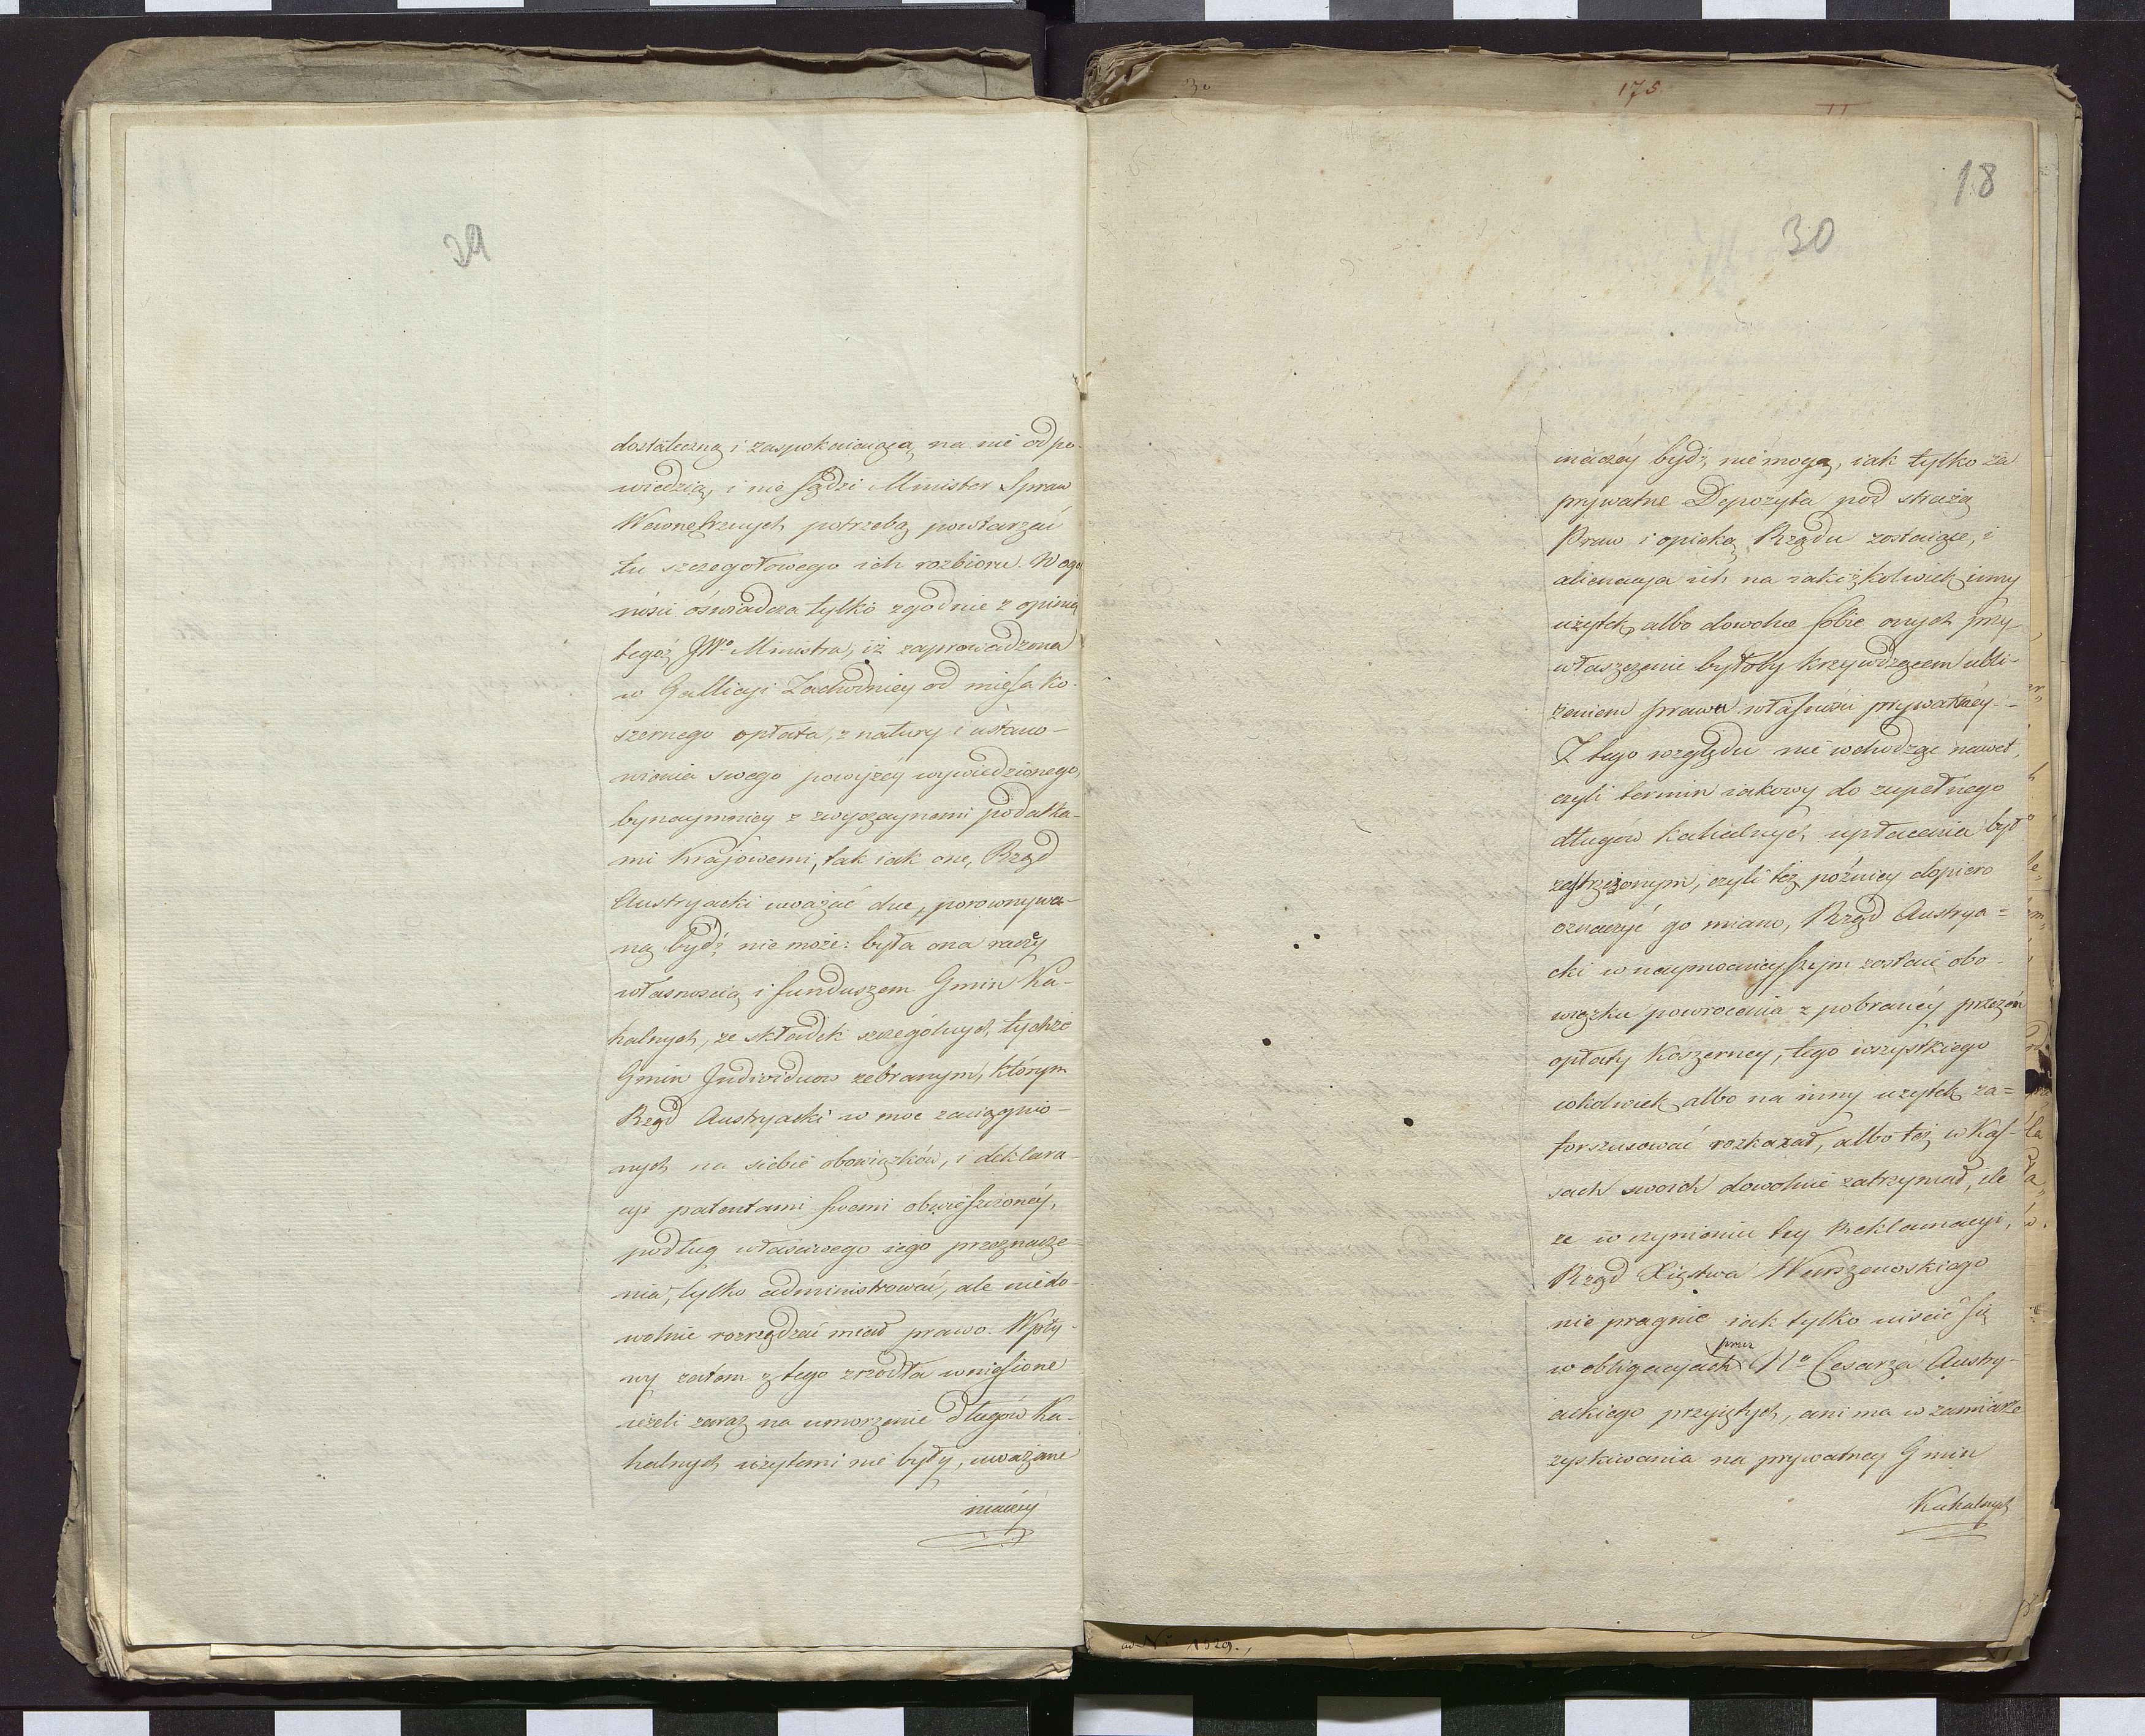 29
dostateczną i zaspokaiaiącą na nie odpo-
wiedzią, i nie sądzi Minister Spraw
Wewnętrznych potrzebą powtarzać
tu szczegołowego ich rozbioru. W ogol
ności oświadcza tylko zgodnie z opinią
tegoż JWo Ministra, iż zaprowadzona
w Gallicyi Zachodniey od mięsa ko-
szernego opłata, z natury i ustano-
wienia swego powyżéy wywiedzionego,
bynaymniey z zwyczaynemi podatka-
mi Kraiowemi, tak iak one, Rząd
Austryacki uważać chce, porownywa-
ną bydź nie może: była ona raczéy
własnością i funduszem Gmin Ka-
halnych, ze składek szczególnych tychże
Gmin Individuow zebranym, którym
Rząd Austryacki w moc zaciągnio-
nych na siebie obowiązków, i deklara-
cyi patentami swemi obwieszczonéy,
podług właściwego iego przeznacze-
nia, tylko administrować, ale niedo-
wolnie rozrządzać miał prawo. Wpły-
wy zatem z tego zrzodła wniesione
ieżeli zaraz na umorzenie długów Ka-
halnych użytemi nie były, uważane
inaczéy
175
18
30
inaczéy bydź niemogą, iak tylko za
prywatne Depozyta pod strażą
Praw i opieką Rządu zostaiące, i
alienacya ich na iakiżkolwiek inny
użytek albo dowolne sobie onych przy-
właszczenie byłoby krzywdzącem ubli-
żeniem prawu własności prywatnéy.
Z tego względu nie wchodząc nawet,
czyli termin iakowy do zupełnego
długów kahalnych upłacenia był
zastrzeżonym, czyli też poźniey dopiero
oznaczyć go miano, Rząd Austrya=
cki w naymocnieyszym zostaie obo-
wiązku powrocenia z pobranéy przezeń
opłaty Koszerney, tego wszystkiego
cokolwiek albo na inny użytek za=
forszusować rozkazał, albo też w Kas-
sach swoich dowolnie zatrzymał, ile
że w czynieniu tey Reklamacyi,
Rząd Xięstwa Warszawskiego
nie pragnie iak tylko uiścić się
w obligacyach przez No Cesarza Austry-
ackiego przyiętych, ani ma w zamiarze
zyskiwania na prywatney Gmin
Kahalnych
ad No 1529.